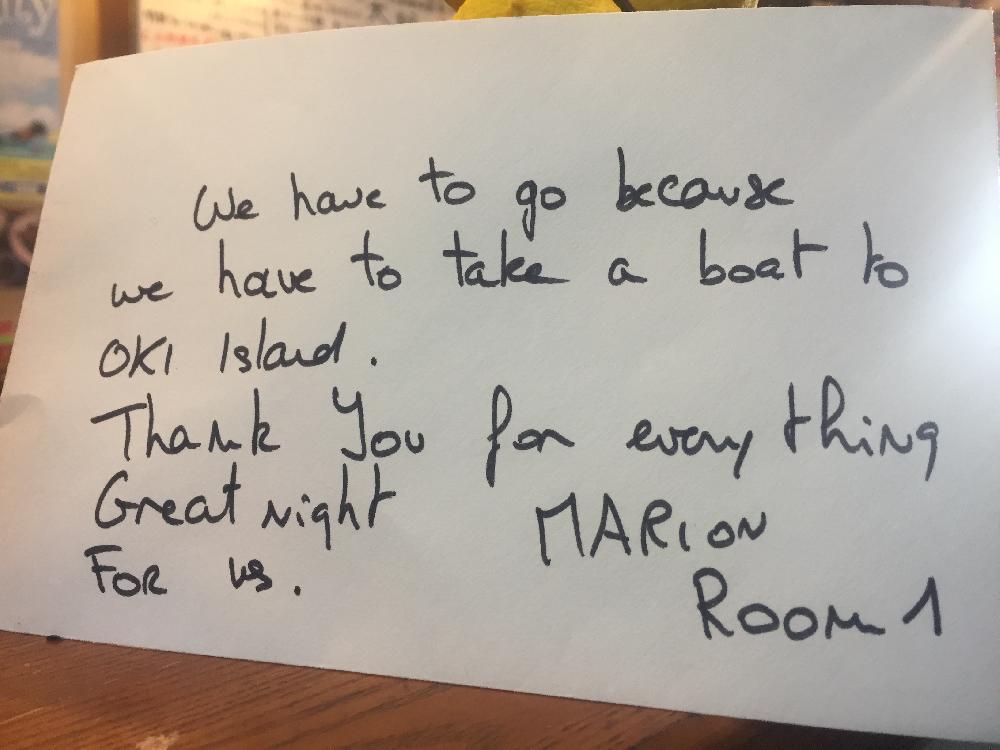 We have to go because
we have to take a boat to
OKI Island.
Thank You for every thing
Great night MARION
FOR us.
Room 1